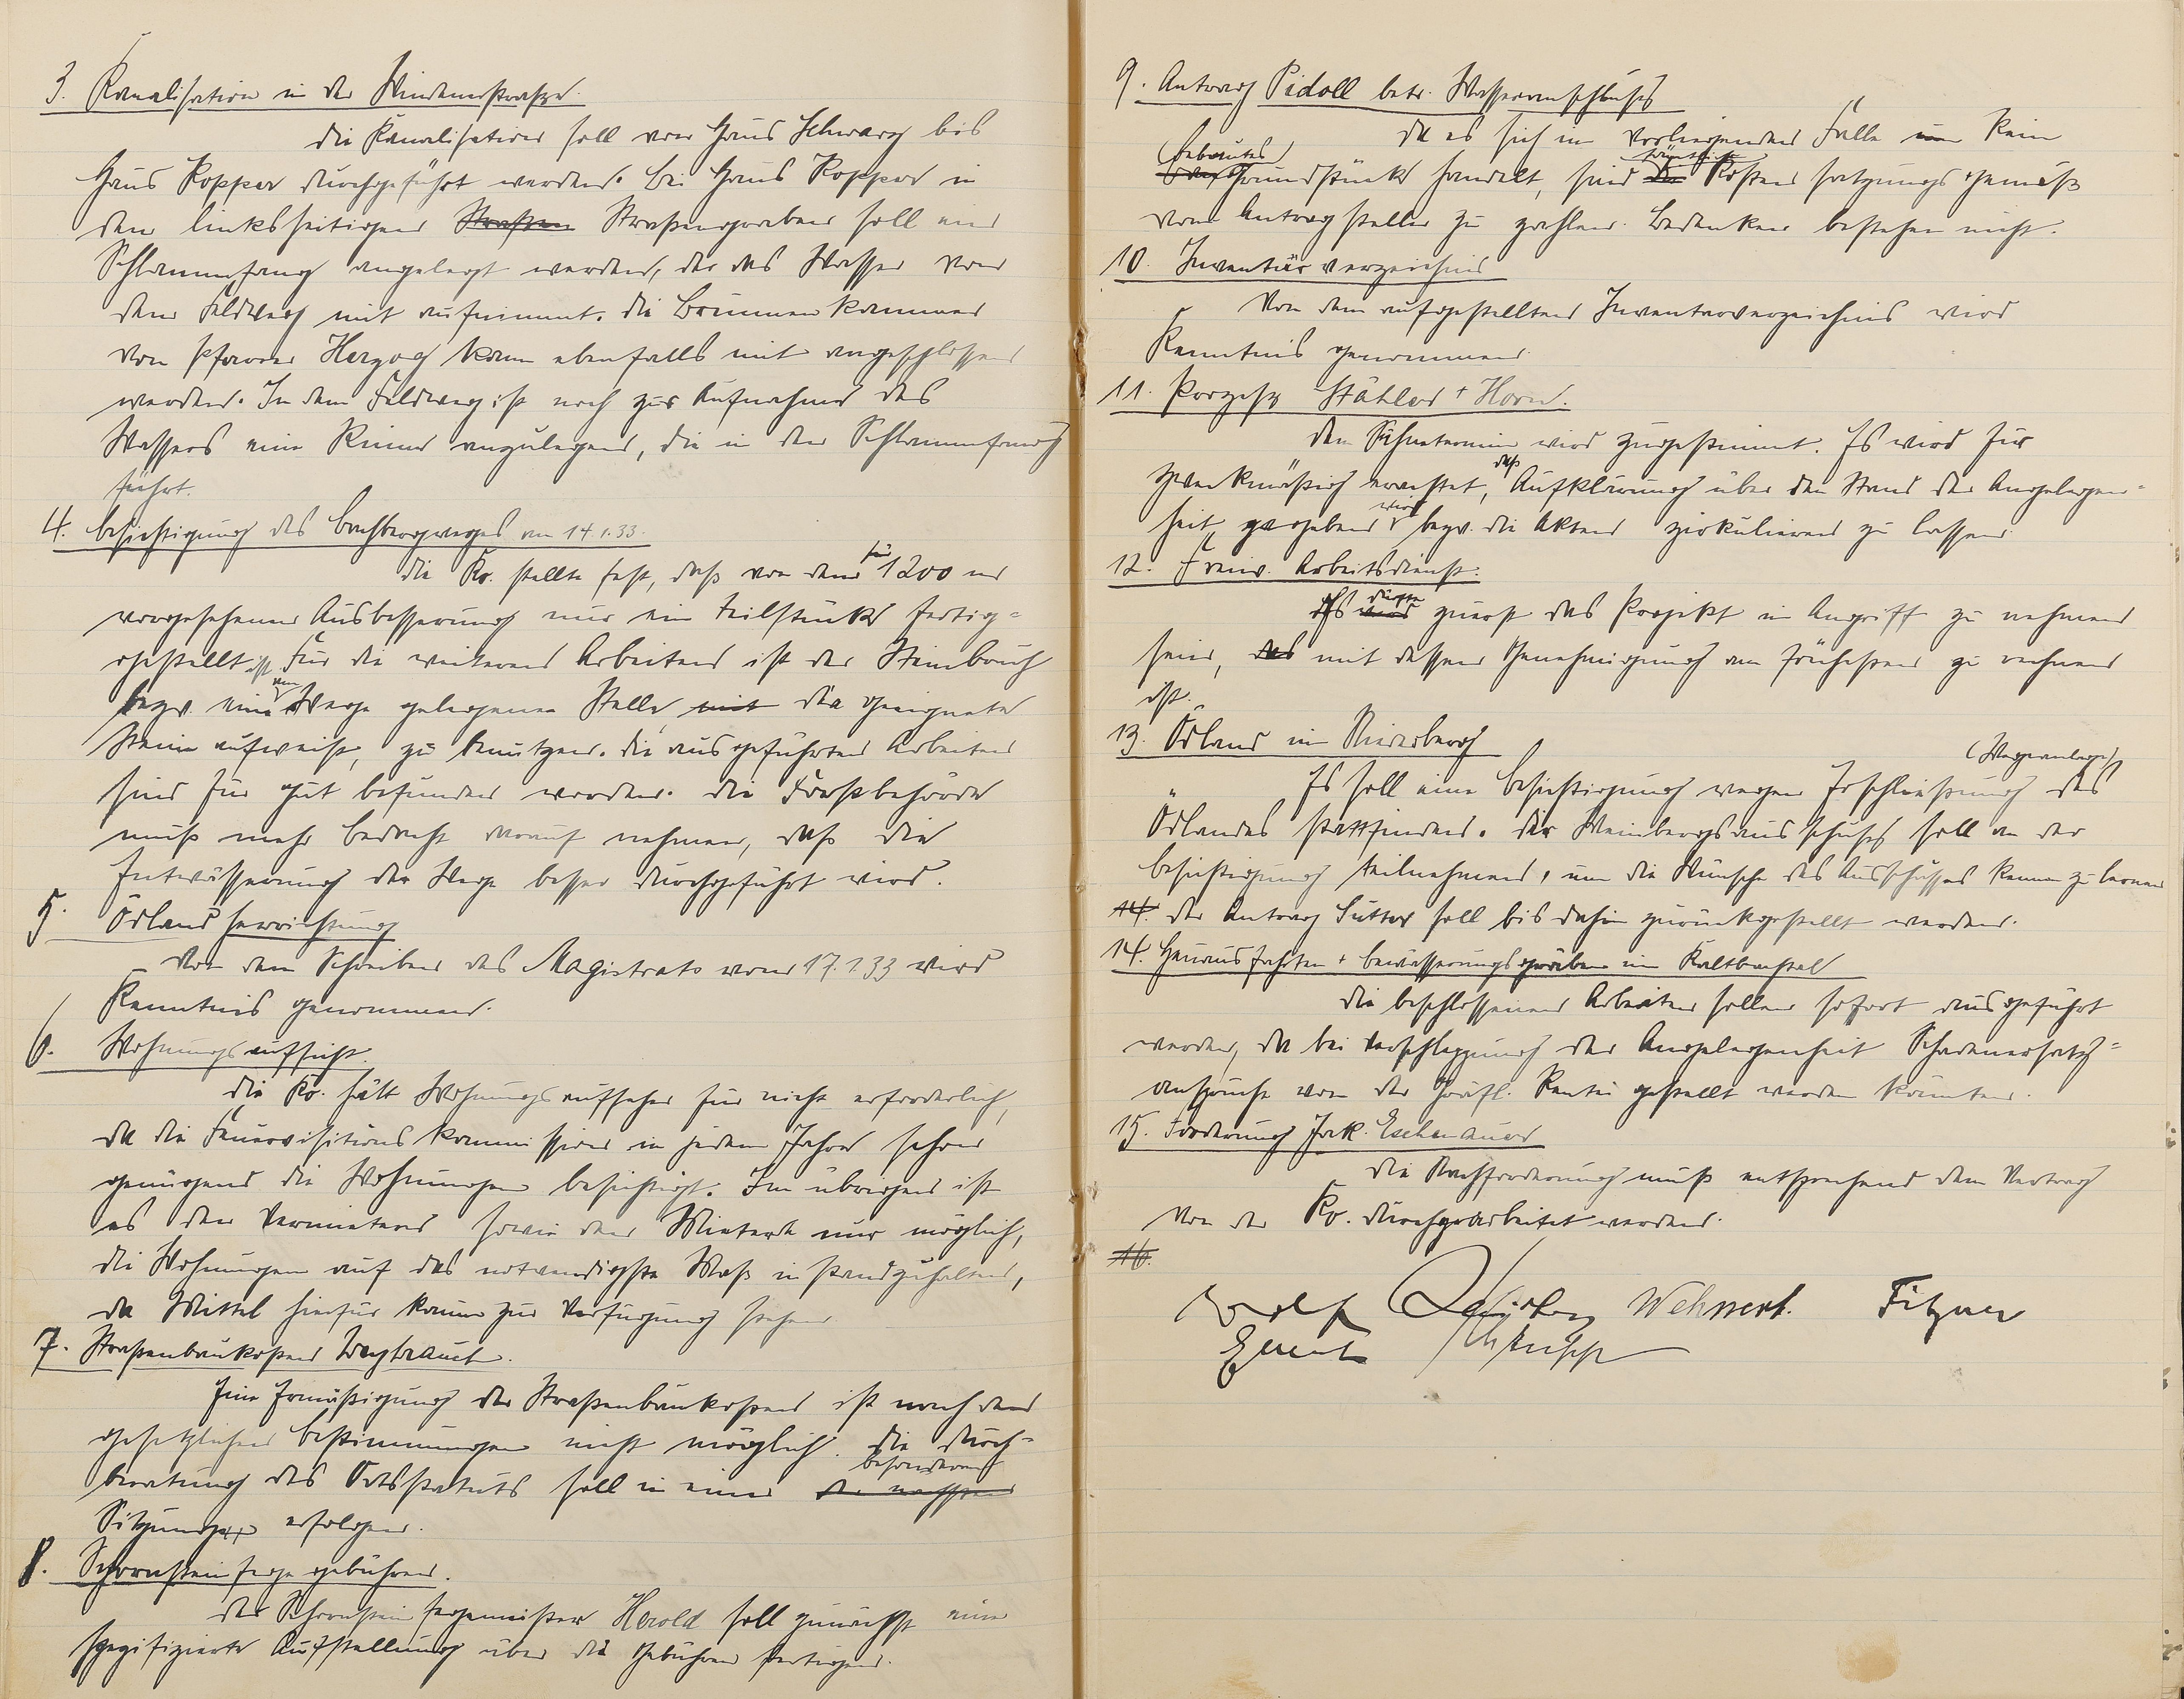 3. Kanalisation in der Windenerstraße.
Die Kanalisation soll vom Haus Schwarz bis
Haus Kopper durchgeführt werden. Bei Haus Kopper in
dem linksseitigen Straßen Straßengraben soll ein
Schlammfang angelegt werden, der das Wasser von
dem Feldweg mit aufnimmt. Die Brunnenkammer
von Pfarrer Herzog kann ebenfalls mit angeschlossen
werden. In dem Feldweg ist noch zur Aufnahme des
Wassers eine Rinne anzulegen, die in den Schlammfang
führt.
4. Besichtigung des Bachbergweges am 14.1.33.
Die Ko. stellte fest, daß von dem für 1200 m
vorgesehenen Ausbesserung nur ein Teilstück fertig-
gestellt ist. Für die weiteren Arbeiten ist der Steinbruch
bezw. eine am Wege gelegene Stelle, mit die geeignete
Steine aufweist, zu benutzen. Die ausgeführten Arbeiten
sind für gut befunden worden. Die Forstbehörde
muß mehr Bedacht darauf nehmen, daß die
Entwässerung der Wege besser durchgeführt wird.
5. Ödlandherrichtung
Von dem Schreiben des Magistrats vom 17.1.33 wird
Kenntnis genommen.
6. Wohnungsaufsicht.
Die Ko. hält Wohnungsaufseher für nicht erforderlich,
da die Feuervisitionskommission in jedem Jahre schon
genügend die Wohnungen besichtigt. Im übrigen ist
es den Vermietern sowie den Mietern nur möglich,
die Wohnungen auf das notwendigste Maß instandzuhalten,
da Mittel hierfür kaum zur Verfügung stehen.
7. Straßenbaukosten Weybrauch.
Eine Ermäßigung der Straßenbaukosten ist nach den
gesetzlichen Bestimmungen nicht möglich. Die Durch-
beratung des Ortsstatuts soll in einer besonderen der nächsten
Sitzung erfolgen.
8. Schornsteinfegegebühren.
Der Schornsteinfegermeister Herold soll zunächst eine
spezifizierte Aufstellung über die Gebühren fertigen.
9. Antrag Pidoll betr. Wasseranschluß
Da es sich im vorliegenden Falle um kein
(bebautes) Grundstück handelt, sind sämtliche die Kosten satzungsgemäß
vom Antragsteller zu zahlen. Bedenken bestehen nicht.
10. Inventarverzeichnis
Von dem aufgestellten Inventarverzeichnis wird
Kenntnis genommen.
11. Prozeß Stähler + Horn.
Dem Sühnetermin wird zugestimmt. Es wird für
zweckmäßig erachtet, daß Aufklärung über den Stand der Angelegen-
heit gegeben wird bezw. die Akten zirkulieren zu lassen.
12. Freiw. Arbeitsdienst.
Es dürfte wird zuerst das Projekt in Angriff zu nehmen
sein, das mit dessen Genehmigung am frühesten zu rechnen
ist.
13. Ödland im Niederberg
Es soll eine Besichtigung wegen Erschließung (Weganlage) des
Ödlandes stattfinden. Der Weinbergsausschuß soll an der
Besichtigung teilnehmen, um die Wünsche des Ausschusses kennen zu lernen
14. Der Antrag Sutter soll bis dahin zurückgestellt werden.
14. Hausfahrten + Bewässerungsgräben im Kaltbachtal
Die beschlossenen Arbeiten sollen sofort ausgeführt
werden, da bei Verschleppung der Angelegenheit Schadenersatz-
ansprüche von der Gräfl. Rentei gestellt werden könnten.
15. Forderung Jak. Eschenauer
Die Nachforderung muß entsprechend dem Vertrag
von der Ko. durchgearbeitet werden.
16.
Wehnert. Fitzner